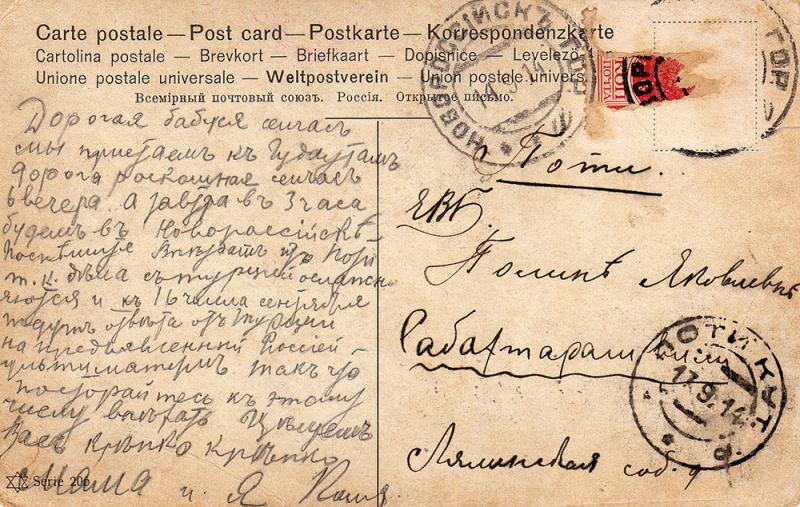 Carte postale — Post card — Postkarte — Korrespondenzkarte
Cartolina postale — Brevkort — Briefkaart — Dopisnice — Levelezö
Unione postale universale — Weltpostverein — Union postale univers.
Всемірный почтовый союзъ. Россія. Открытое письмо.
НОВОРОССІЙСКЪ
КОП
ПОЧТА
ГОР
Дорогая бабуся сейчасъ
мы пріѣдемъ къ Гудаутамъ
дорога роскошная сейчасъ
6 вечера а завтра въ 3 часа
будемъ въ Новороссійскѣ
Поспѣшите изъ Поти
т. к. дѣла съ турціей
и къ 16 числа сентября
ждутъ отвѣта отъ Турціи
на предъявленный Россіей
ультиматумъ такъ что
постарайтесь къ этому
числу выѣхать Цѣлуемъ
Васъ крѣпко крѣпко
Мама и я Коля
г. Поти.
ЕВБ.
Полинѣ Яковлевнѣ
Сабахтарашвили
Ляминская соб. д
ПОТИ КУТ.
17.9.14
Serie 20p